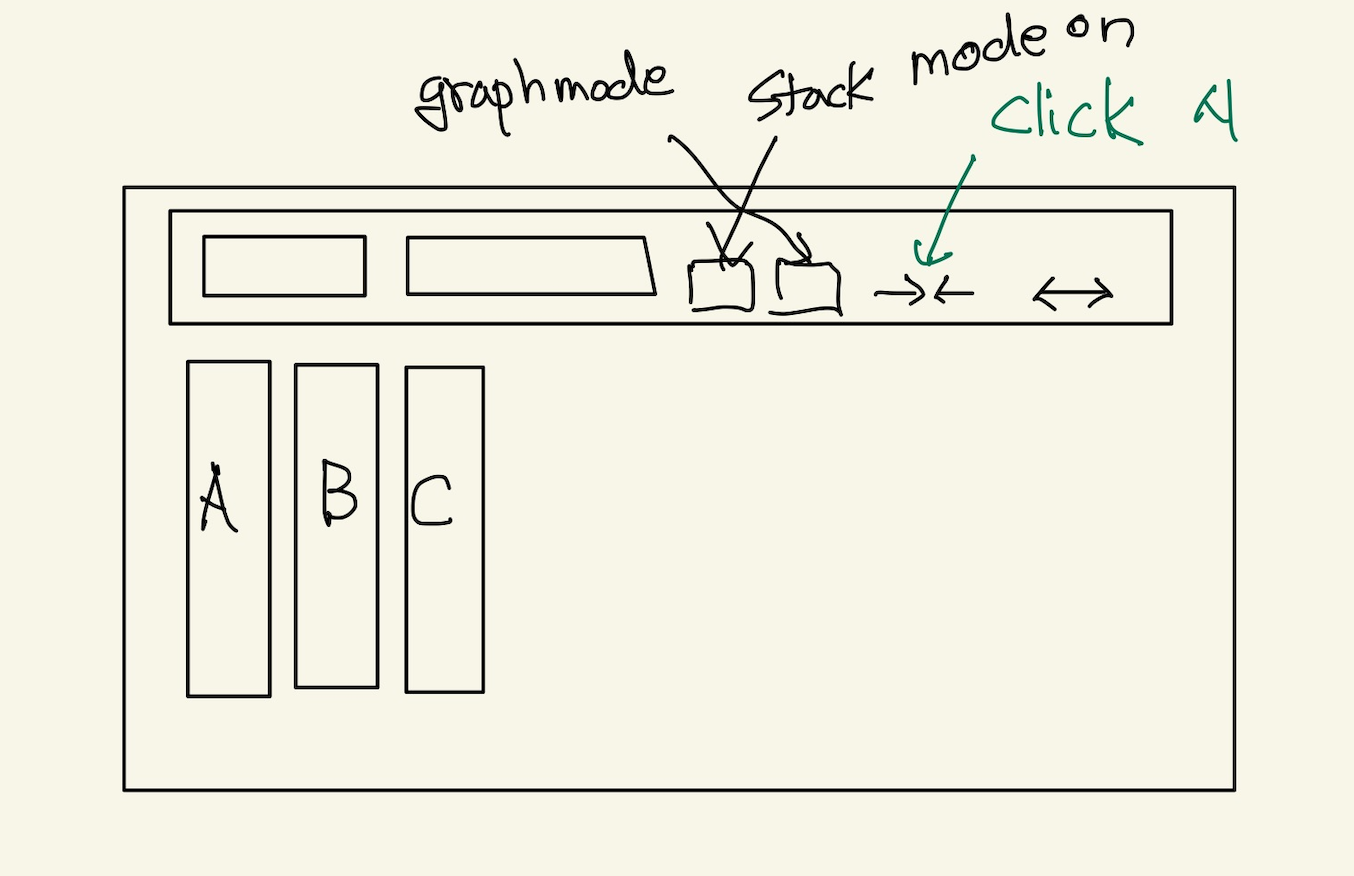 graphmode stack mode on
click
A B C